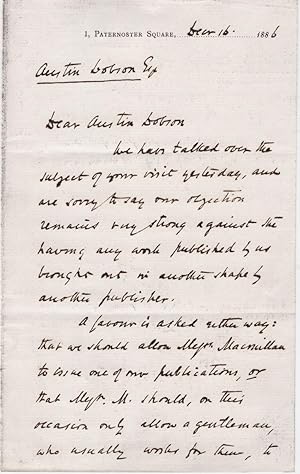 1, Paternoster Square, Decr 16. 1886
Austin Dobson Esq
Dear Austin Dobson
We have talked over the
subject of your visit yesterday, and
are sorry to say our objection
remains very strong against the
having any work published by us
brought out in another shape by
another publisher.
A favour is asked either way:
that we should allow Messrs. Macmillan
to issue one of our publications, or
that Messrs. M. should, on this
occasion only allow a gentleman,
who usually works for them, to